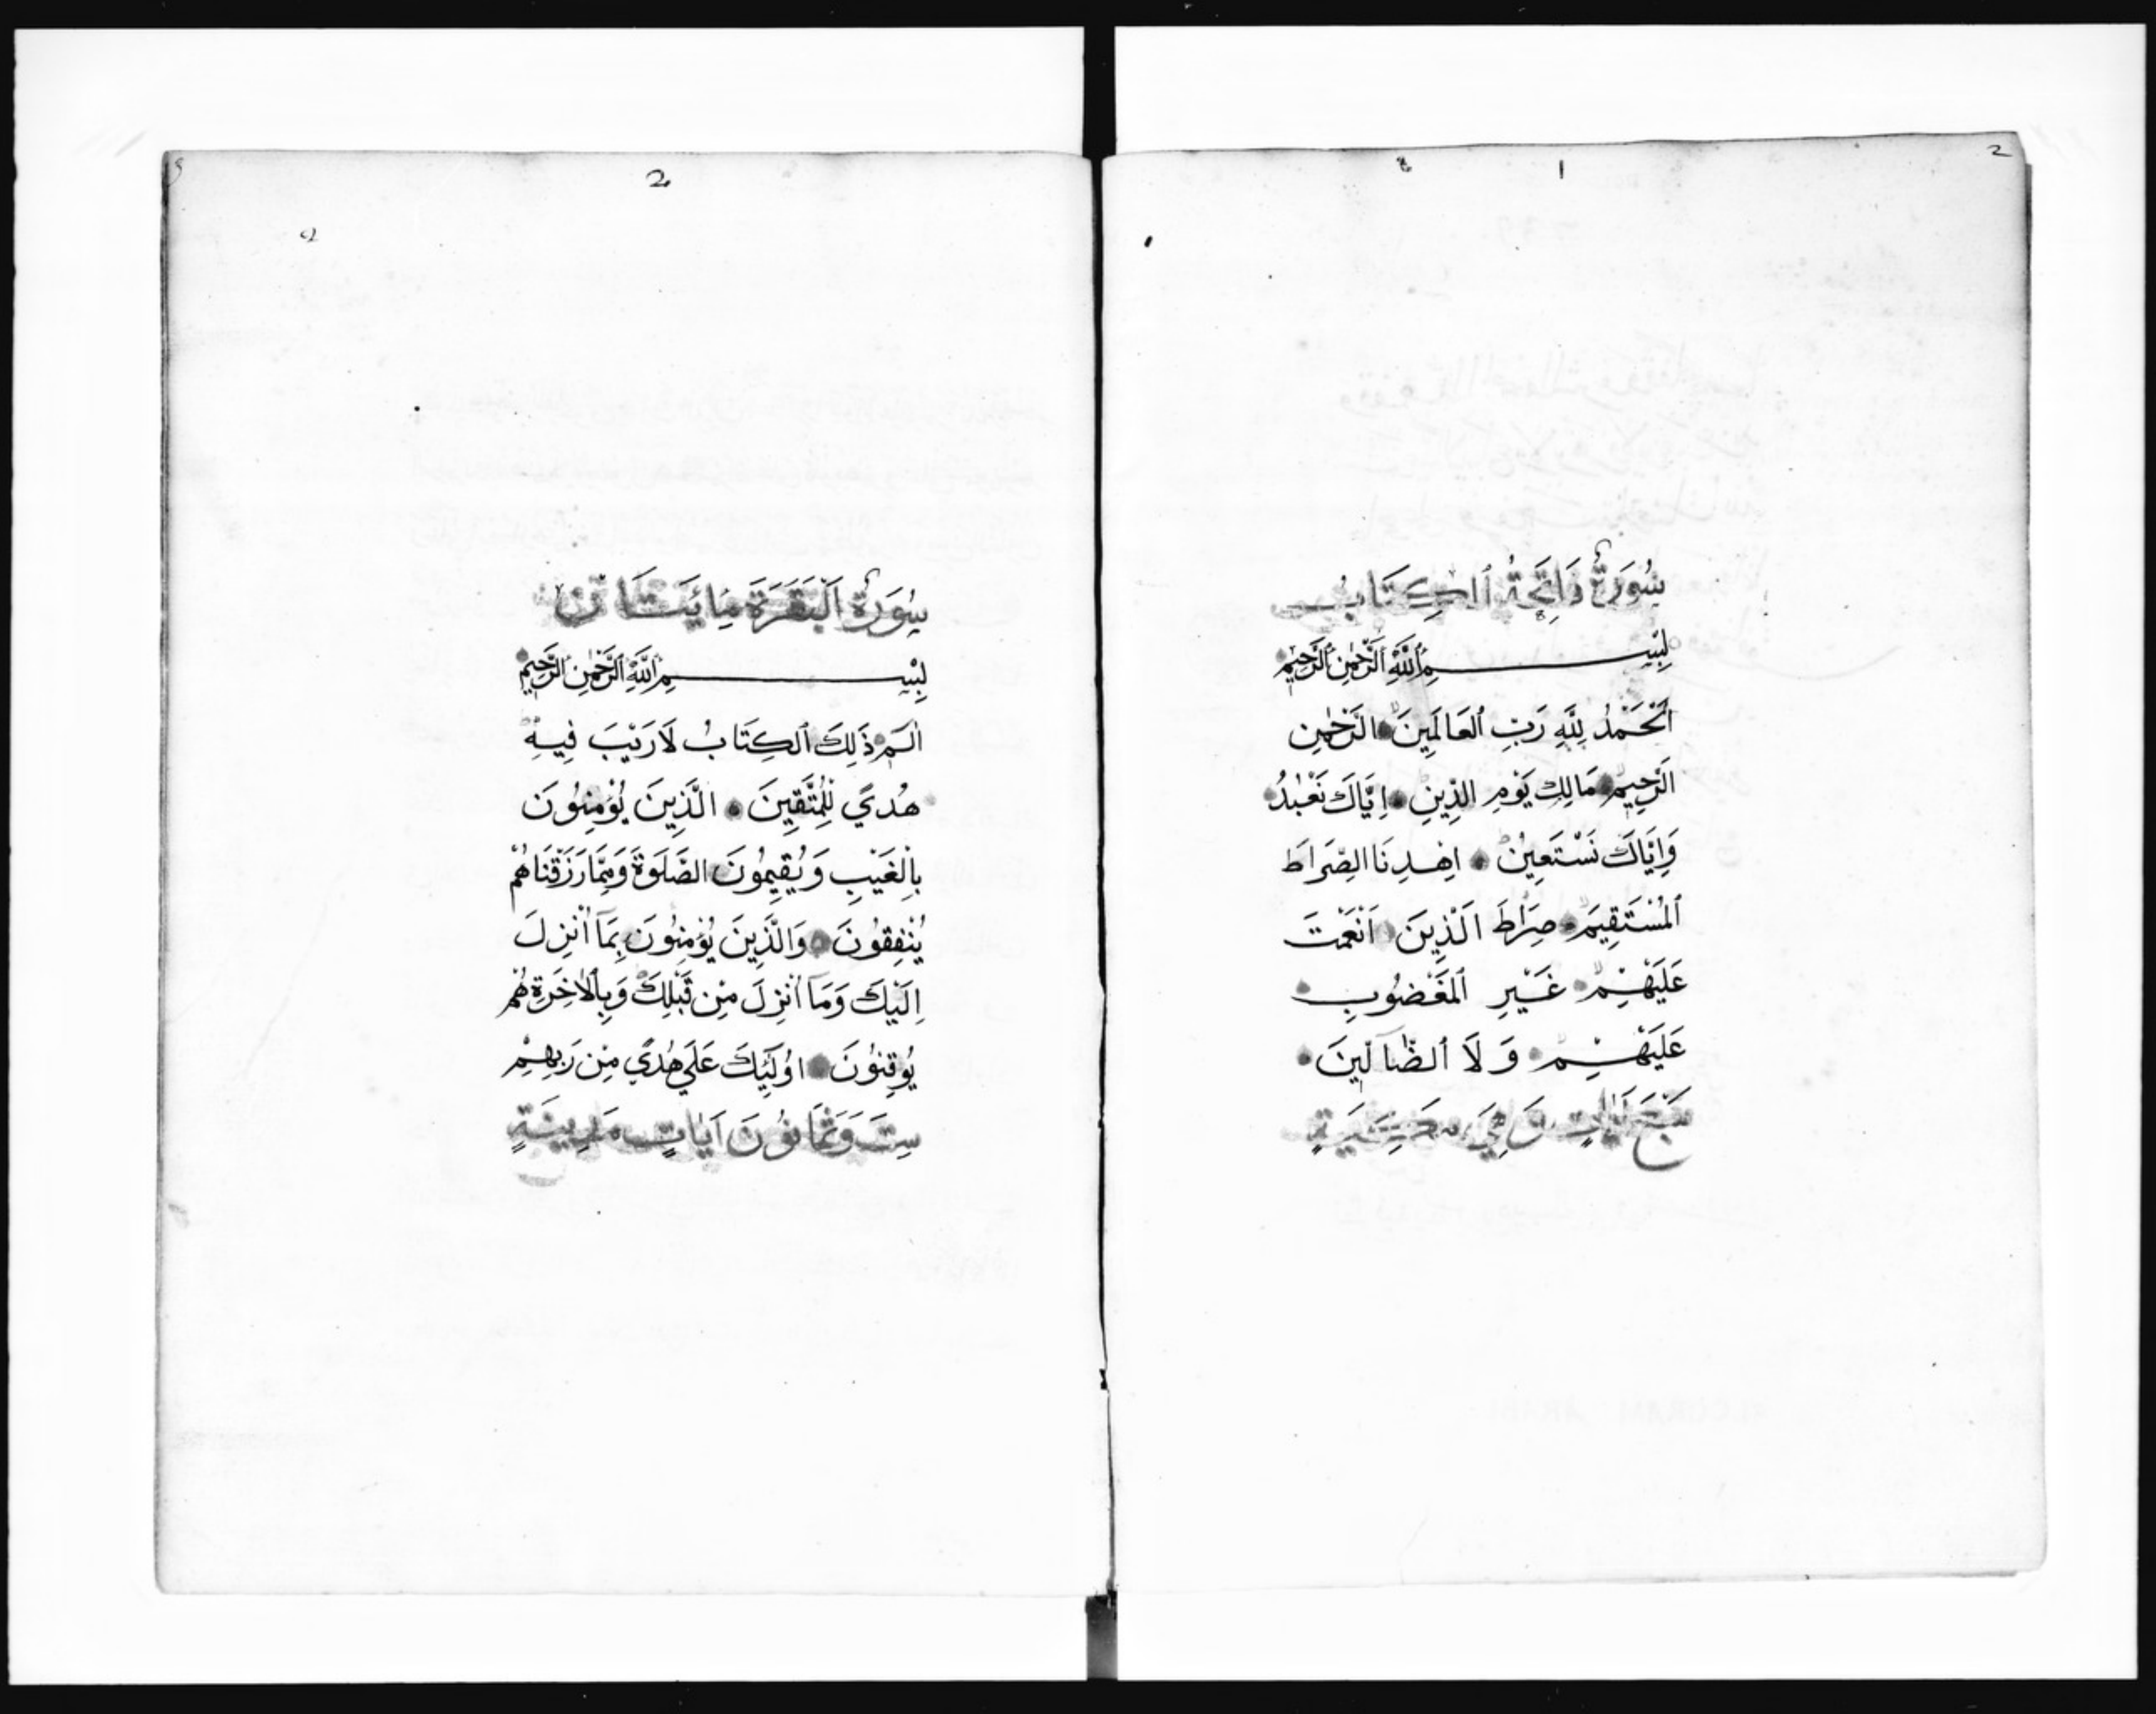 2
1
سُورَةُ فَاتِحَةُ الْكِتَابِ
بِسْمِ اللَّهِ الرَّحْمٰنِ الرَّحِيمِ
اَلْحَمْدُ لِلَّهِ رَبِّ الْعَالَمِينَ الرَّحْمٰنِ
الرَّحِيمِ مَالِكِ يَوْمِ الدِّينِ اِيَّاكَ نَعْبُدُ
وَاِيَّاكَ نَسْتَعِينُ اِهْدِنَا الصِّرَاطَ
الْمُسْتَقِيمَ صِرَاطَ الَّذِينَ اَنْعَمْتَ
عَلَيْهِمْ غَيْرِ الْمَغْضُوبِ
عَلَيْهِمْ وَلَا الضَّآلِّينَ
سَبْعَ اٰيَاتٍ وَهِيَ مَكِّيَّةٌ
2
سُورَةُ الْبَقَرَةِ مِايَتَانِ
بِسْمِ اللَّهِ الرَّحْمٰنِ الرَّحِيمِ
الٓمٓ ذَلِكَ الْكِتَابُ لَا رَيْبَ فِيهِ
هُدًي لِلْمُتَّقِينَ الَّذِينَ يُؤْمِنُونَ
بِالْغَيْبِ وَيُقِيمُونَ الصَّلَوةَ وَمِمَّا رَزَقْنَاهُمْ
يُنْفِقُونَ وَالَّذِينَ يُؤْمِنُونَ بِمَآ اُنْزِلَ
اِلَيْكَ وَمَآ اُنْزِلَ مِنْ قَبْلِكَ وَبِالْاٰخِرَةِ هُمْ
يُوقِنُونَ اُولَٓئِكَ عَلَي هُدًي مِنْ رَبِّهِمْ
سِتَّ وَثَمَانُونَ اٰيَاتٍ مَدِينِيَّةٍ